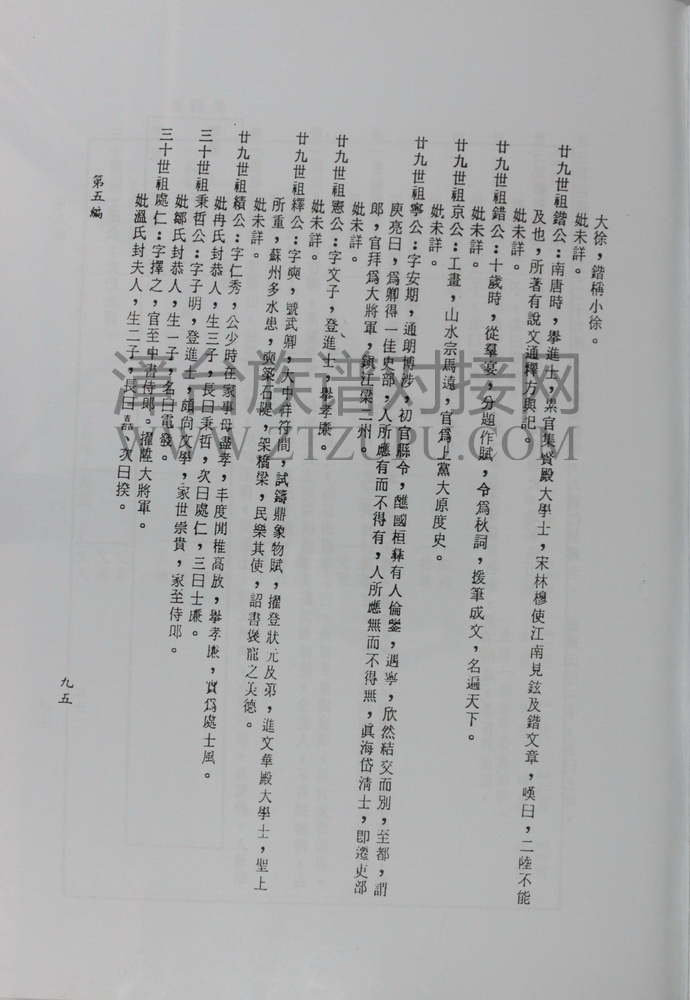 大徐，鍇稱小徐。
妣未詳。
廿九世祖鍇公：南唐時，舉進士，累官集賢殿大學士，宋林穆使江南見鉉及鍇文章，嘆曰，二陸不能
及也，所著有說文通釋方輿記。
妣未詳。
廿九世祖錯公：十歲時，從羣宴，分題作賦，令爲秋詞，援筆成文，名遍天下。
妣未詳。
廿九世祖京公：工畫，山水宗馬遠，官爲上黨大原度史。
妣未詳。
廿九世祖寧公：字安期，通朗博涉，初官縣令，譙國桓彝有人倫鑒，遇寧，欣然結交而別，至都，謂
庾亮曰，爲卿得一佳吏部，人所應有而不得有，人所應無而不得無，眞海岱淸士，即遷吏部
郎，官拜爲大將軍，鎭江梁二州。
妣未詳。
廿九世祖憲公：字文子，登進士，舉孝廉。
妣未詳。
廿九世祖繹公：字奭，號武卿，大中祥符間，試鑄鼎象物賦，擢登狀元及第，進文華殿大學士，聖上
所重，蘇州多水患，奭築石隄，架橋梁，民樂其使，詔書褒寵之美德。
妣未詳。
廿九世祖績公：字仁秀，公少時在家事母盡孝，丰度閒雅高放，舉孝廉，實爲處士風。
妣冉氏封恭人，生三子，長曰秉哲，次曰處仁，三曰士廉。
三十世祖秉哲公：字子明，登進士，頗尚文學，家世崇貴，家至侍郎。
妣鄒氏封恭人，生一子，名曰電發。
三十世祖處仁：字擇之，官至中書侍郎。擢陞大將軍。
妣溫氏封夫人，生二子，長曰嚞，次曰揆。
第五編
九五
清台族谱对接网
WWW.ZTZUPU.COM